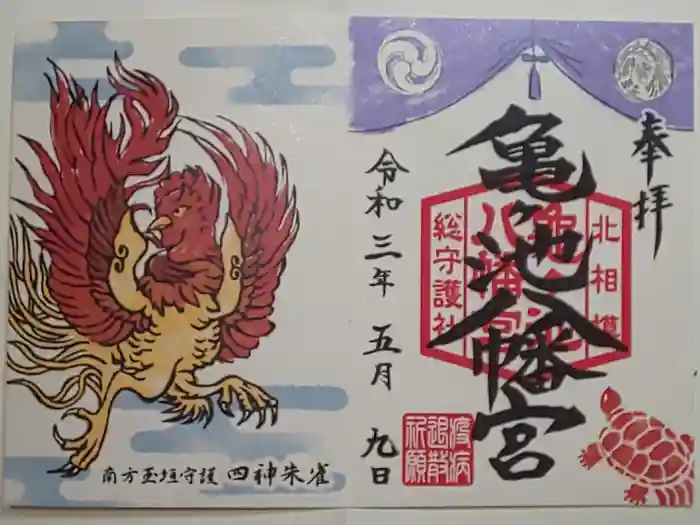 奉拝
亀ヶ池八幡宮
北相模
亀ヶ池
八幡宮
総守護社
令和三年 五月 九日
疫病
退散
祈願
南方玉垣守護 四神朱雀